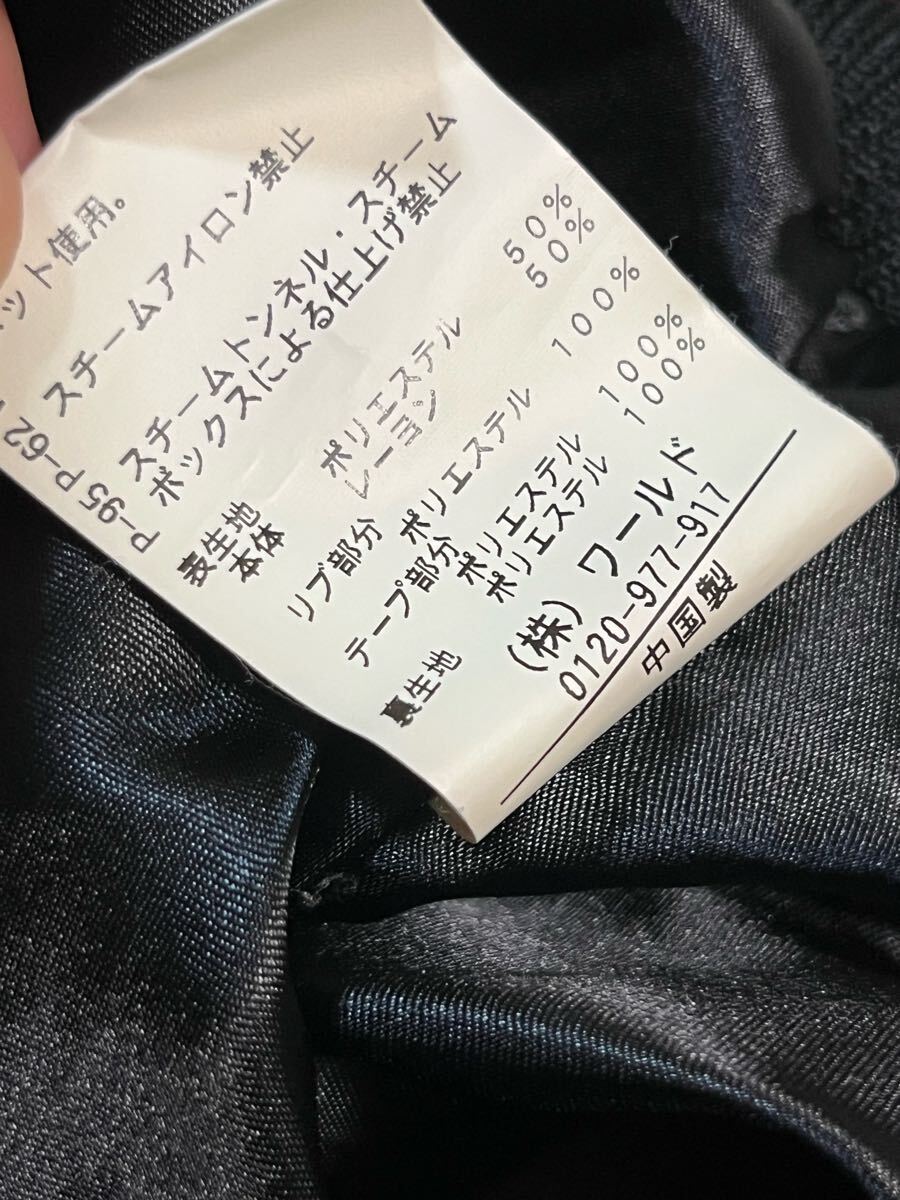 ット使用。
P-62 スチームアイロン禁止
P-95 スチームトンネル・スチーム
ボックスによる仕上げ禁止
表生地
本体 ポリエステル 50%
レーヨン 50%
リブ部分 ポリエステル 100%
テープ部分 ポリエステル 100%
裏生地 ポリエステル 100%
(株) ワールド
0120-977-917
中国製